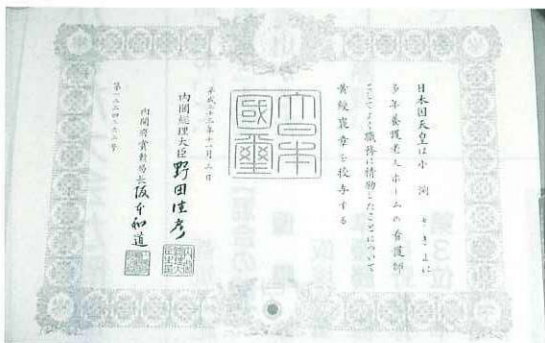 日本国天皇は小渕ときよに
多年養護老人ホームの看護師
としてよく職務に精励したことについて
黄綬褒章を授与する
大日本國璽
平成二十三年十一月三日
内閣総理大臣 野田佳彦
内閣府賞勲局長 阪本和道